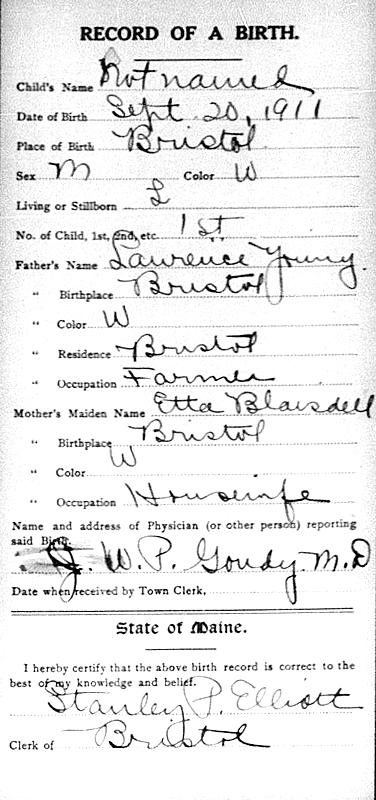 RECORD OF A BIRTH.
Child's Name Not named
Date of Birth Sept 20, 1911
Place of Birth Bristol
Sex M Color W
Living or Stillborn L
No. of Child, 1st, 2nd, etc. 1st
Father's Name Lawrence Young.
" Birthplace Bristol
" Color W
" Residence Bristol
" Occupation Farmer
Mother's Maiden Name Etta Blaisdell
" Birthplace Bristol
" Color W
" Occupation Housewife
Name and address of Physician (or other person) reporting
said Birth.
J. W. P. Goudy M.D
Date when received by Town Clerk,
State of Maine.
I hereby certify that the above birth record is correct to the
best of my knowledge and belief.
Stanley P. Elliott
Clerk of Bristol